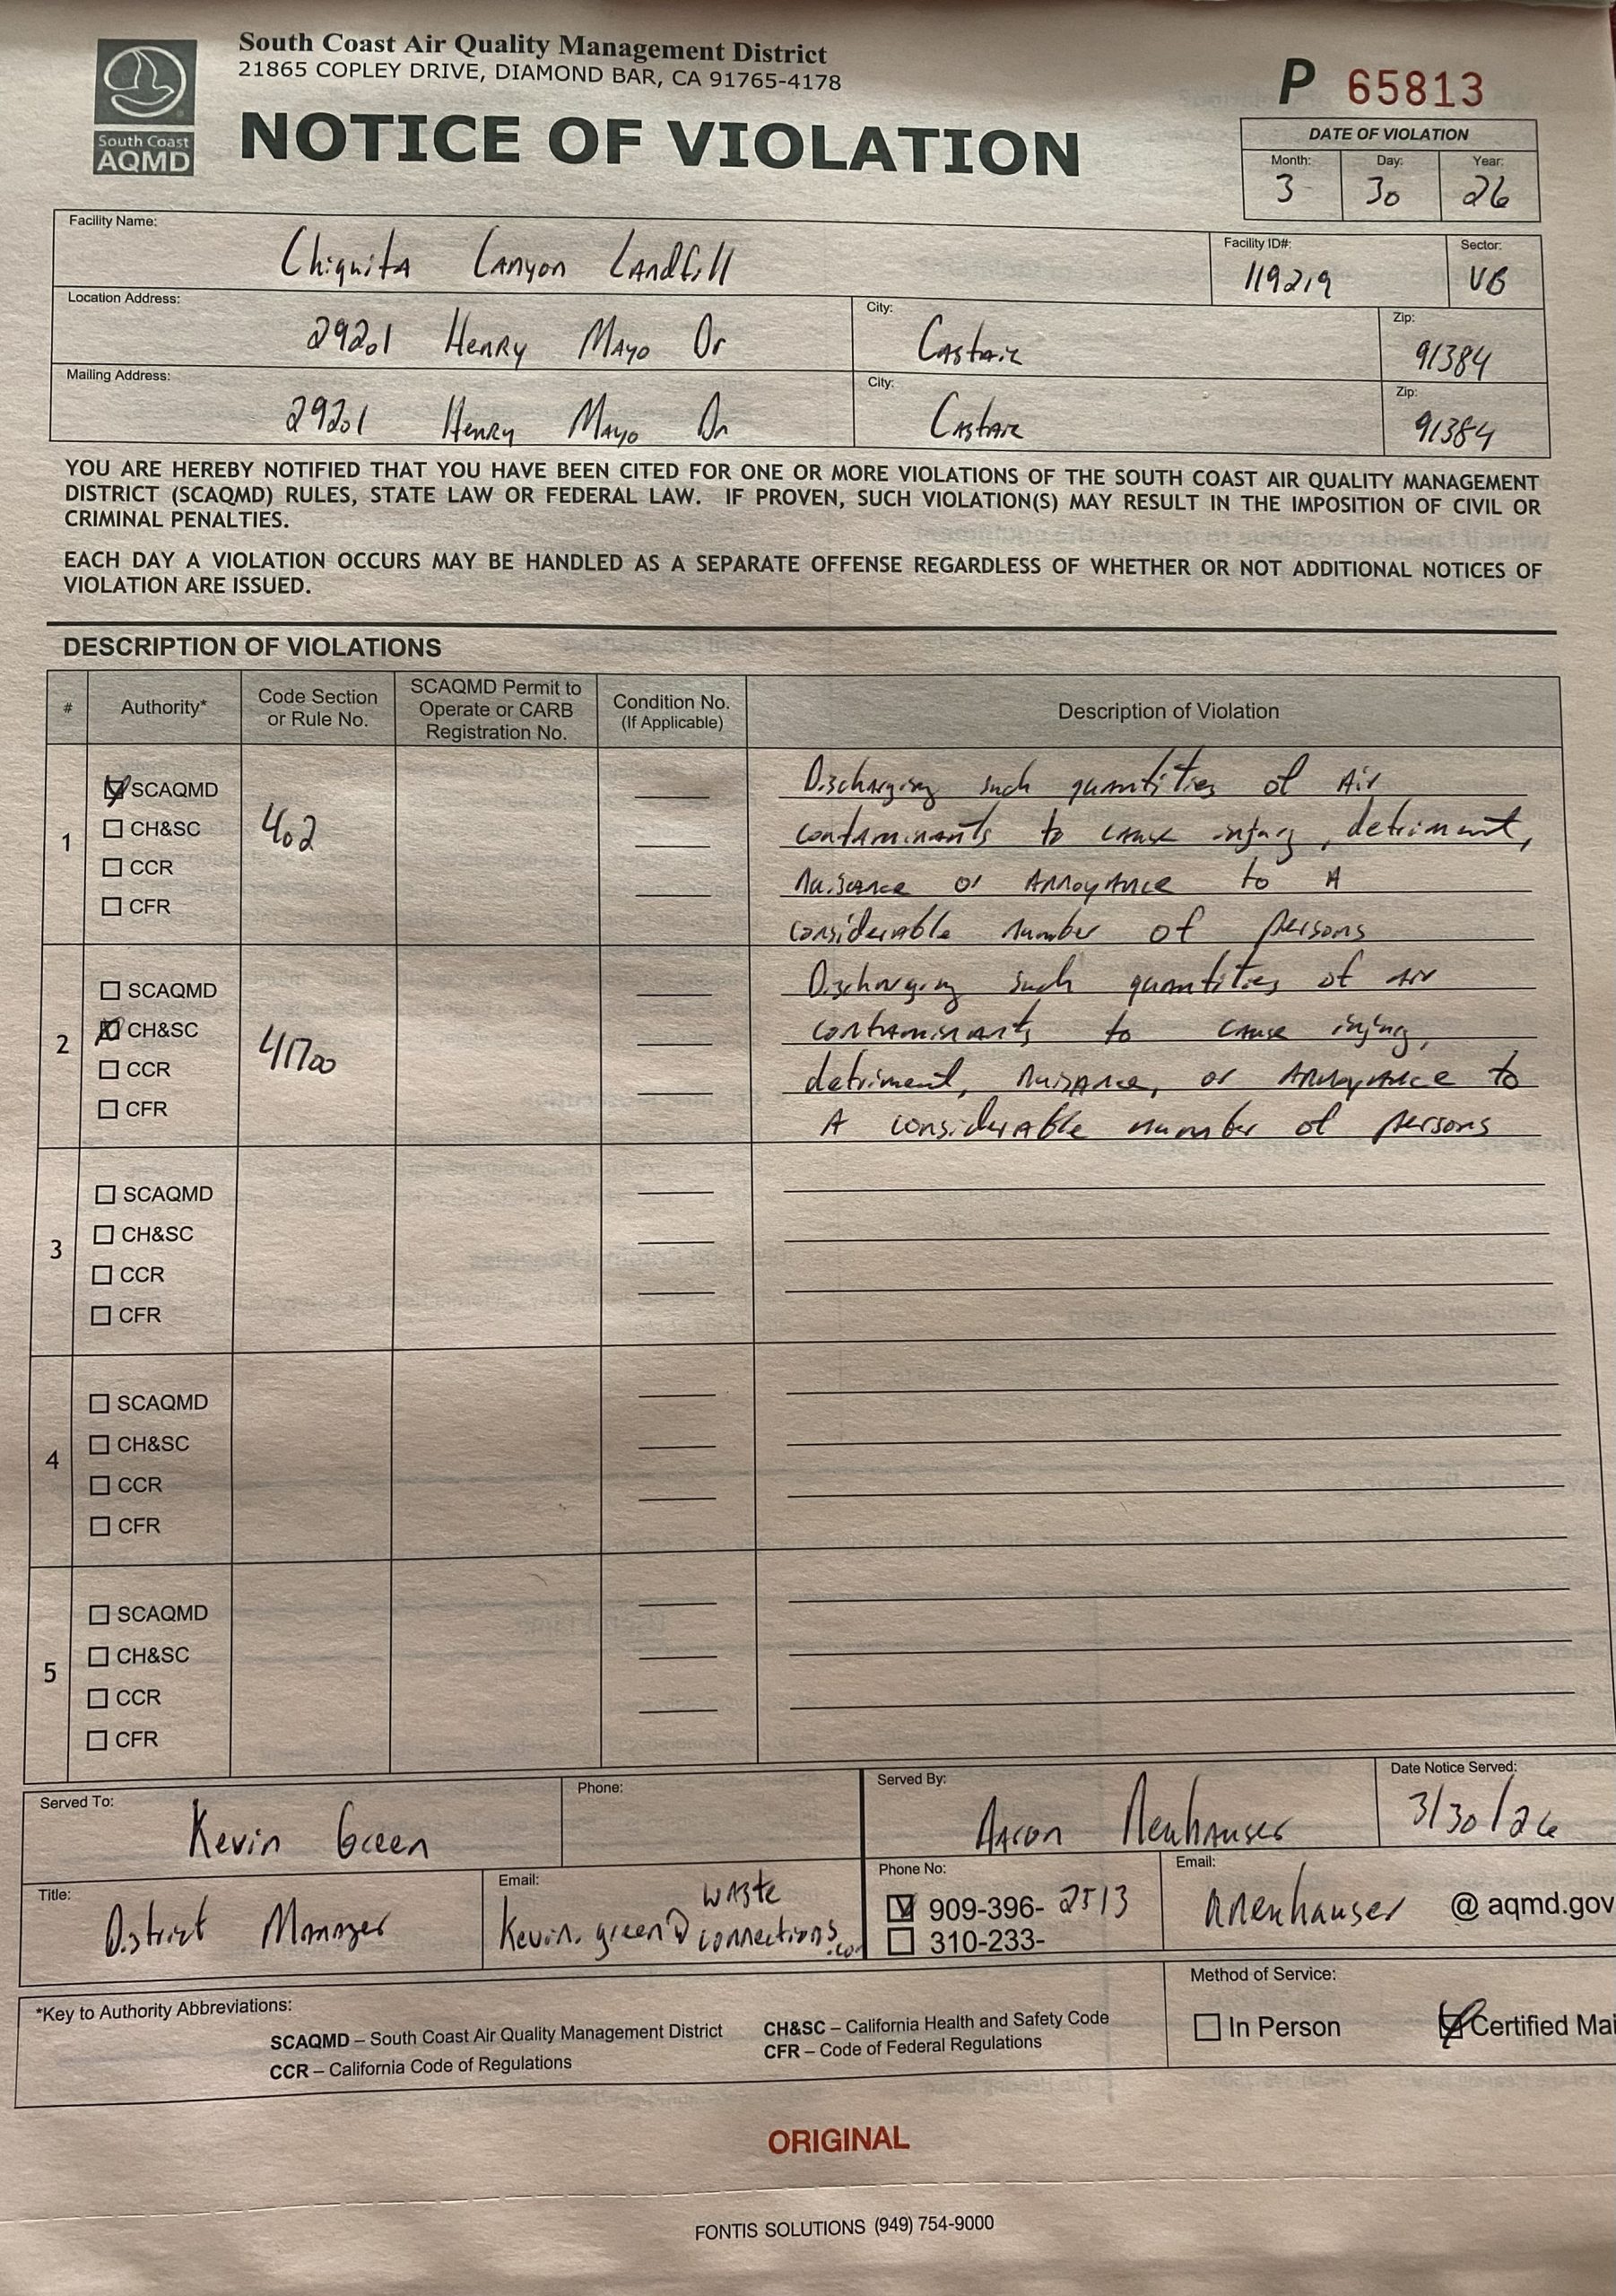 South Coast Air Quality Management District
21865 COPLEY DRIVE, DIAMOND BAR, CA 91765-4178
South Coast
AQMD
NOTICE OF VIOLATION
P 65813
DATE OF VIOLATION
Month: Day: Year:
3 30 26
Facility Name:
Chiquita Canyon Landfill
Facility ID#:
119219
Sector:
VB
Location Address:
29201 Henry Mayo Dr
City:
Castaic
Zip:
91384
Mailing Address:
29201 Henry Mayo Dr
City:
Castaic
Zip:
91384
YOU ARE HEREBY NOTIFIED THAT YOU HAVE BEEN CITED FOR ONE OR MORE VIOLATIONS OF THE SOUTH COAST AIR QUALITY MANAGEMENT
DISTRICT (SCAQMD) RULES, STATE LAW OR FEDERAL LAW. IF PROVEN, SUCH VIOLATION(S) MAY RESULT IN THE IMPOSITION OF CIVIL OR
CRIMINAL PENALTIES.
EACH DAY A VIOLATION OCCURS MAY BE HANDLED AS A SEPARATE OFFENSE REGARDLESS OF WHETHER OR NOT ADDITIONAL NOTICES OF
VIOLATION ARE ISSUED.
DESCRIPTION OF VIOLATIONS
#
Authority*
Code Section
or Rule No.
SCAQMD Permit to
Operate or CARB
Registration No.
Condition No.
(If Applicable)
Description of Violation
1
SCAQMD
CH&SC
CCR
CFR
402
Discharging such quantities of Air
contaminants to cause injury, detriment,
Nuisance or Annoyance to A
considerable number of persons
2
SCAQMD
CH&SC
CCR
CFR
41700
Discharging such quantities of air
contaminants to cause injury,
detriment, nuisance, or Annoyance to
A considerable number of persons
3
SCAQMD
CH&SC
CCR
CFR
4
SCAQMD
CH&SC
CCR
CFR
5
SCAQMD
CH&SC
CCR
CFR
Served To:
Kevin Green
Phone:
Served By:
Aaron Neuhauser
Date Notice Served:
3/30/26
Title:
District Manager
Email:
Kevin.green@ waste
connections.com
Phone No:
909-396- 2513
310-233-
Email:
aneuhauser @ aqmd.gov
*Key to Authority Abbreviations:
SCAQMD – South Coast Air Quality Management District
CCR – California Code of Regulations
CH&SC – California Health and Safety Code
CFR – Code of Federal Regulations
Method of Service:
In Person
Certified Mai
ORIGINAL
FONTIS SOLUTIONS (949) 754-9000